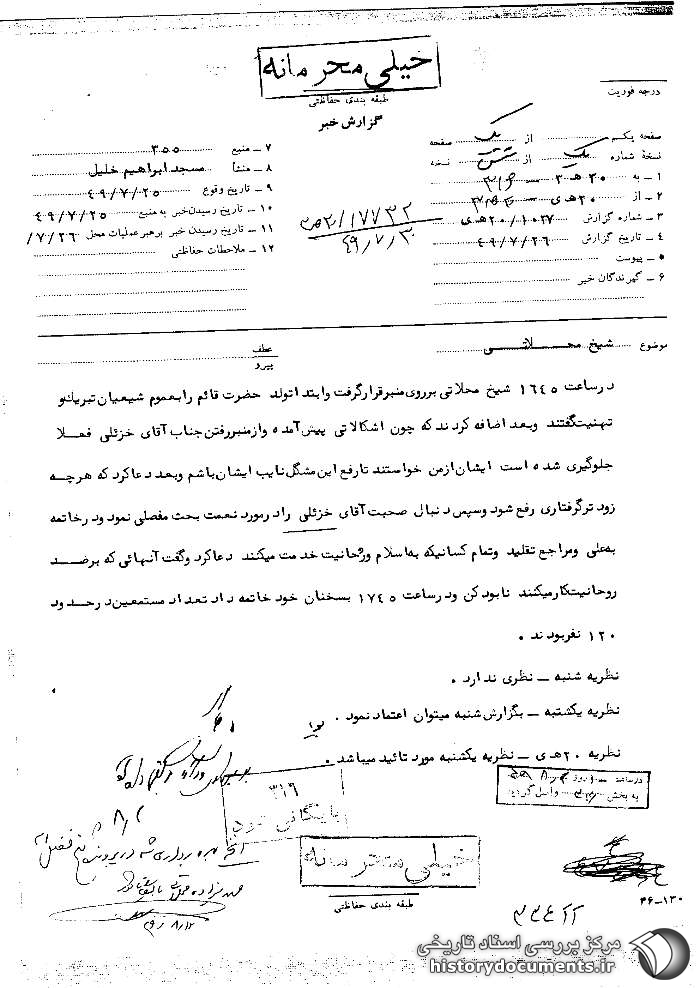 خیلی محرمانه
طبقه بندی حفاظتی
گزارش خبر
درجه فوریت
صفحه یکم از یک صفحه
نسخهٔ شماره یک از شش نسخه
۱ ـ به ۲۰ هـ ۳ ـ ۳۱۶
۲ ـ از ۲۰ هـ ی
۳ ـ شماره گزارش ۱۰۲۷ / ۲۰هـ ی
۴ ـ تاریخ گزارش ۴۹/۷/۲۶
۵ ـ پیوست
۶ ـ گیرندگان خبر
۷ ـ منبع ۳۵۵
۸ ـ منشأ مسجد ابراهیم خلیل
۹ ـ تاریخ وقوع ۴۹/۷/۲۵
۱۰ ـ تاریخ رسیدن خبر به منبع ۴۹/۷/۲۵
۱۱ ـ تاریخ رسیدن خبر برهبر عملیات محل ۷/۲۶/
۱۲ ـ ملاحظات حفاظتی
۳۱۲/۱۷۷۳۲
۴۹/۷/۳۰
موضوع شیخ محلاتی
عطف
پیرو
در ساعت ۱۶۴۵ شیخ محلاتی برروی منبر قرار گرفت و ابتدا تولد حضرت قائم را بعموم شیعیان تبریک و
تهنیت گفتند وبعد اضافه کردند که چون اشکالاتی پیش آمده و از منبر رفتن جناب آقای خزئلی فعلا
جلوگیری شده است ایشان از من خواستند تا رفع این مشگل نایب ایشان باشم وبعد دعا کرد که هرچه
زود تر گرفتاری رفع شود وسپس دنبال صحبت آقای خزئلی را در مورد نعمت بحث مفصلی نمود و در خاتمه
به علی ومراجع تقلید وتمام کسانیکه به اسلام وروحانیت خدمت میکنند دعا کرد وگفت آنهائی که بر ضد
روحانیت کار میکنند نابود کن ودر ساعت ۱۷۴۵ بسخنان خود خاتمه داد تعداد مستمعین در حدود
۱۲۰ نفر بودند .
نظریه شنبه ـ نظری ندارد .
نظریه یکشنبه ـ بگزارش شنبه میتوان اعتماد نمود .
نظریه ۲۰هـ ی ـ نظریه یکشنبه مورد تائید میباشد .
۳۱۶
بایگانی شود
خیلی محرمانه
طبقه بندی حفاظتی
۴۶-۱۳۰
مرکز بررسی اسناد تاریخی
historydocuments.ir